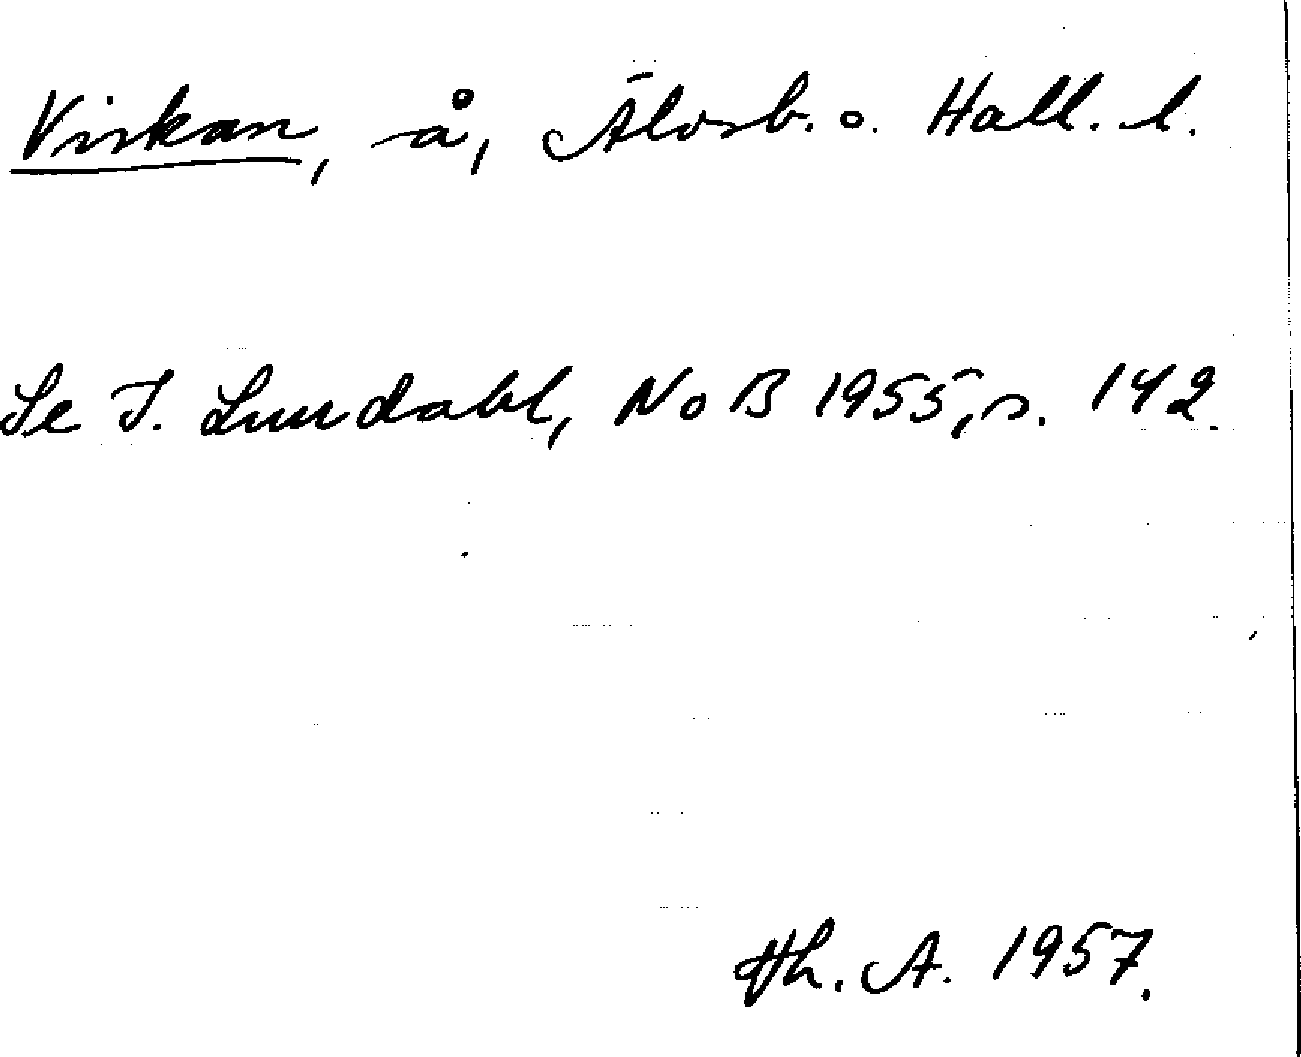 Viskan, å, Älvsb. o. Hall. l.
Se I. Lundahl, NoB 1955, s. 142.
Hh. A. 1957.